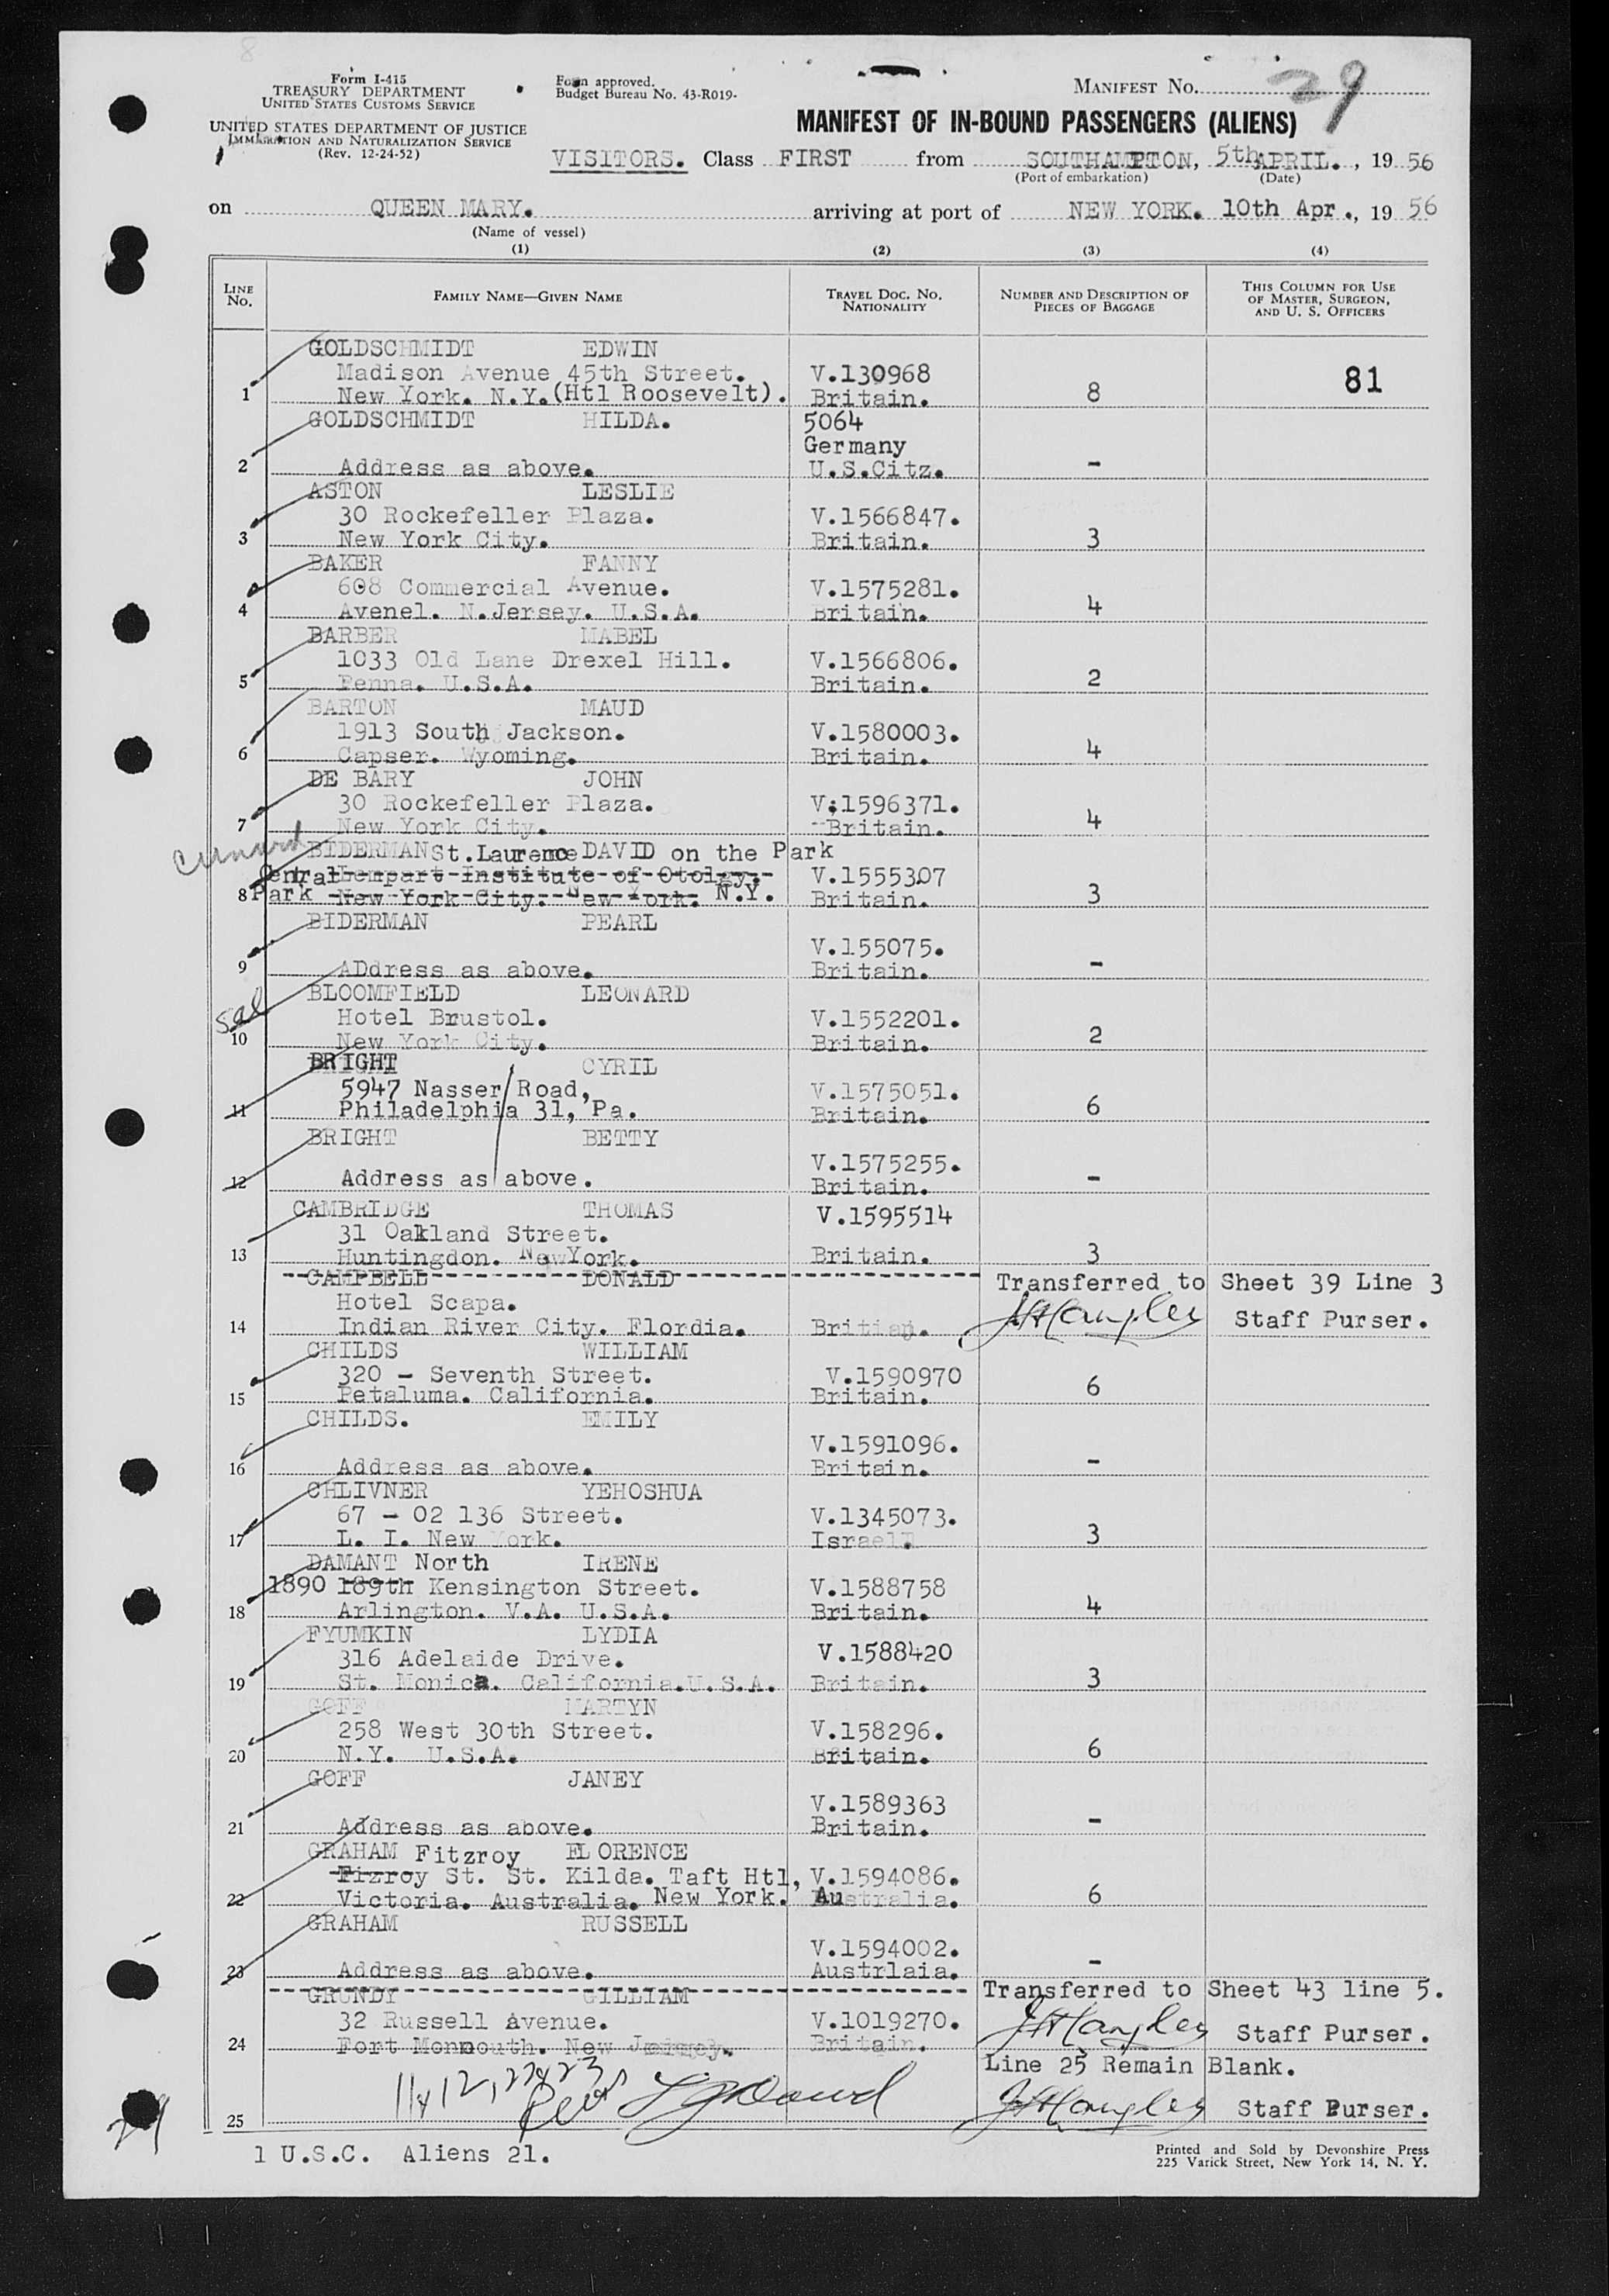 Form I-415
TREASURY DEPARTMENT
UNITED STATES CUSTOMS SERVICE
UNITED STATES DEPARTMENT OF JUSTICE
IMMIGRATION AND NATURALIZATION SERVICE
(Rev. 12-24-52)
Form approved.
Budget Bureau No. 43-R019-
MANIFEST No. 29
MANIFEST OF IN-BOUND PASSENGERS (ALIENS)
VISITORS. Class FIRST from SOUTHAMPTON, 5th APRIL., 19 56
(Port of embarkation) (Date)
on QUEEN MARY. arriving at port of NEW YORK. 10th Apr., 19 56
(Name of vessel)
(1) (2) (3) (4)
LINE No. FAMILY NAME—GIVEN NAME TRAVEL DOC. No. NATIONALITY NUMBER AND DESCRIPTION OF PIECES OF BAGGAGE THIS COLUMN FOR USE OF MASTER, SURGEON, AND U. S. OFFICERS
GOLDSCHMIDT EDWIN
Madison Avenue 45th Street. V.130968
1 New York. N.Y.(Htl Roosevelt). Britain. 8 81
GOLDSCHMIDT HILDA. 5064
Germany
2 Address as above. U.S.Citz. -
ASTON LESLIE
30 Rockefeller Plaza. V.1566847.
3 New York City. Britain. 3
BAKER FANNY
608 Commercial Avenue. V.1575281.
4 Avenel. N.Jersey. U.S.A. Britain. 4
BARBER MABEL
1033 Old Lane Drexel Hill. V.1566806.
5 Penna. U.S.A. Britain. 2
BARTON MAUD
1913 South Jackson. V.1580003.
6 Capser. Wyoming. Britain. 4
DE BARY JOHN
30 Rockefeller Plaza. V:1596371.
7 New York City. Britain. 4
Cunard
BIDERMAN St.Laurence DAVID on the Park
Central Lempart Institute of Otolgy. V.1555307
8 Park New York City. New York. N.Y. Britain. 3
BIDERMAN PEARL
V.155075.
9 ADdress as above. Britain. -
BLOOMFIELD LEONARD
Hotel Brustol. V.1552201.
10 New York City. Britain. 2
BRIGHT CYRIL
5947 Nasser Road, V.1575051.
11 Philadelphia 31, Pa. Britain. 6
BRIGHT BETTY
V.1575255.
12 Address as above. Britain. -
CAMBRIDGE THOMAS V.1595514
31 Oakland Street.
13 Huntingdon. New York. Britain. 3
CAMPBELL DONALD Transferred to Sheet 39 Line 3
Hotel Scapa.
14 Indian River City. Flordia. Britian. Staff Purser.
CHILDS WILLIAM
320 - Seventh Street. V.1590970
15 Petaluma. California. Britain. 6
CHILDS. EMILY
V.1591096.
16 Address as above. Britain. -
CHLIVNER YEHOSHUA
67 - 02 136 Street. V.1345073.
17 L. I. New York. Israel. 3
DAMANT North IRENE
1890 189th Kensington Street. V.1588758
18 Arlington. V.A. U.S.A. Britain. 4
FYUMKIN LYDIA
316 Adelaide Drive. V.1588420
19 St. Monica. California.U.S.A. Britain. 3
GOFF MARTYN
258 West 30th Street. V.158296.
20 N.Y. U.S.A. Britain. 6
GOFF JANEY
V.1589363
21 Address as above. Britain. -
GRAHAM Fitzroy FLORENCE
Fizroy St. St. Kilda. Taft Htl, V.1594086.
22 Victoria. Australia. New York. Australia. 6
GRAHAM RUSSELL
V.1594002.
23 Address as above. Austrlaia. -
GRUNDY GILLIAM Transferred to Sheet 43 line 5.
32 Russell Avenue. V.1019270.
24 Fort Monmouth. New Jersey. Britain. Staff Purser.
Line 25 Remain Blank.
11 & 12, 22 & 23
25 Staff Purser.
1 U.S.C. Aliens 21.
Printed and Sold by Devonshire Press
225 Varick Street, New York 14, N. Y.